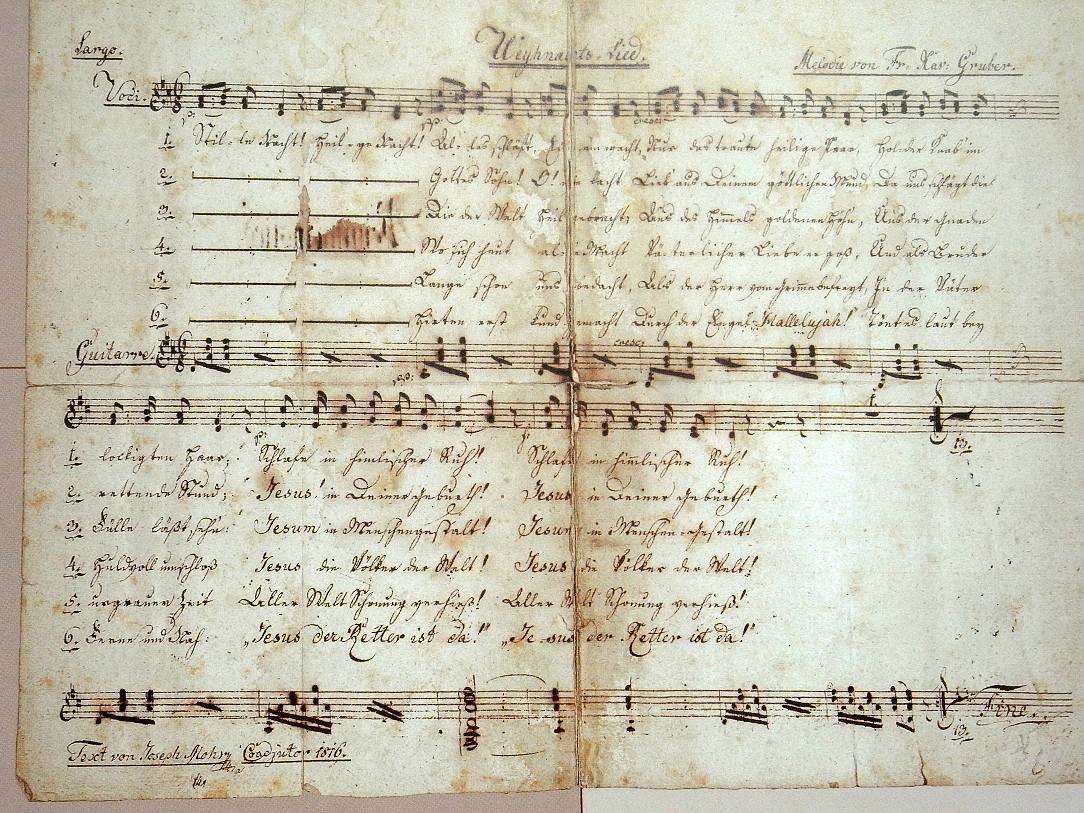 Largo.
Weyhnachts-Lied.
Melodie von Fr: Xav: Gruber.
Voci.
p:
pp:
cresc:
1. Stil-le Nacht! Heil-ge Nacht! Al-les schläft, Ein-sam wacht, Nur das traute heilige Paar, Hol-der Knab im
2. Gottes Sohn! O! wie lacht Lieb aus Deinem göttlichen Mund, Da uns schlägt die
3. Die der Welt Heil gebracht; Aus des Himmels goldenen Höhn, Aus der Gnaden
4. Wo sich heut alle Macht Väterlicher Liebe ergoß, Und als Bruder
5. Lange schon uns bedacht, Als der Herr vom Grimme befreyt, In der Väter
6. Hirten erst kund gemacht Durch der Engel Hallelujah! Tönt es laut bey
Guitarre.
cresc:
pp:
p:
1. lockigten Haar; Schlafe in himlischer Ruh! Schlafe in himlischer Ruh!
2. rettende Stund; Jesus! in Deiner Geburth! Jesus in Deiner Geburth!
3. Fülle läßt sehn: Jesum in Menschengestalt! Jesum in Menschen-Gestalt!
4. Huldvoll umschloß Jesus die Völker der Welt! Jesus die Völker der Welt!
5. urgrauer Zeit Aller Welt Schonung verhieß! Aller Welt Schonung verhieß!
6. Ferne und Nah: „Jesus der Retter ist da!" „Jesus der Retter ist da!"
Fine.
Text von Joseph Mohr Coadjutor 1816.